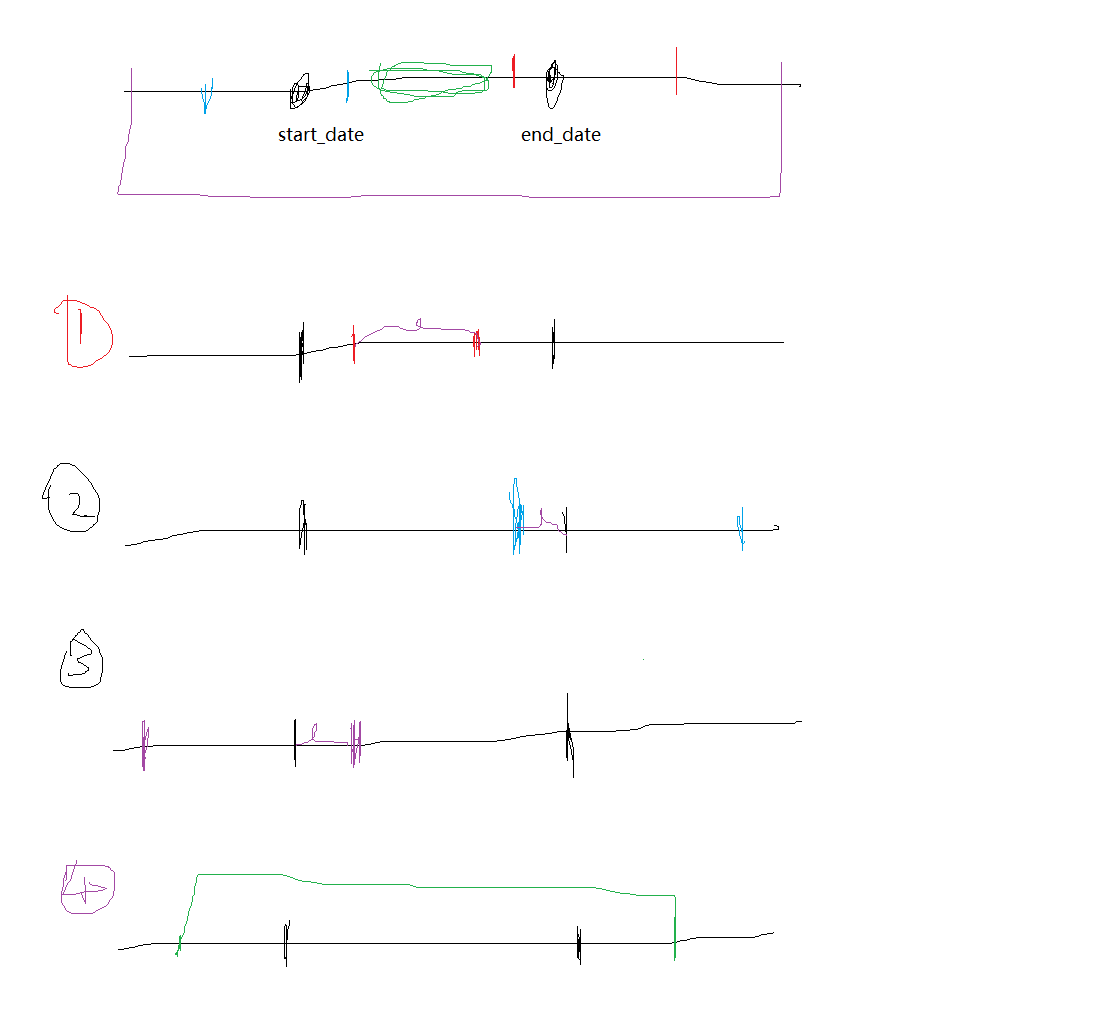 start_date end_date
1
2
3
4